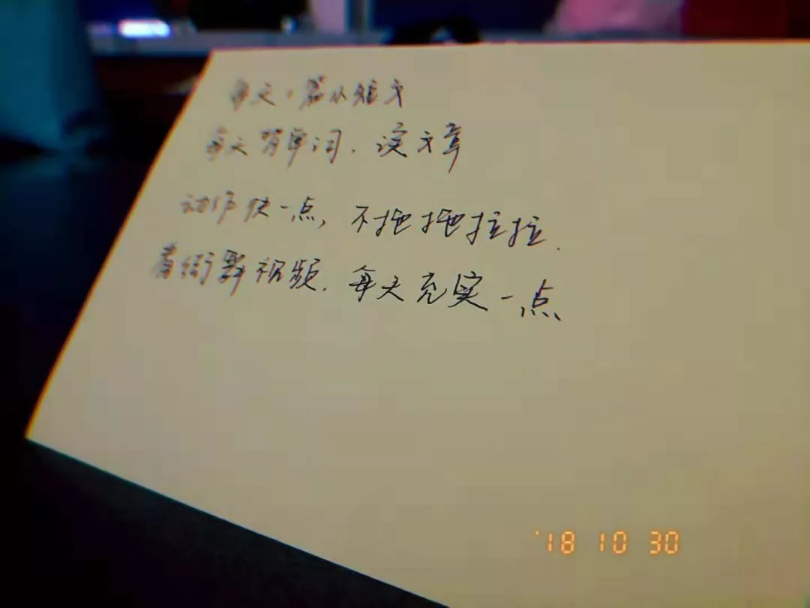 每天一篇小短文
每天背单词，读文章
动作快一点，不拖拖拉拉．
看 视频．每天充实一点
'18 10 30